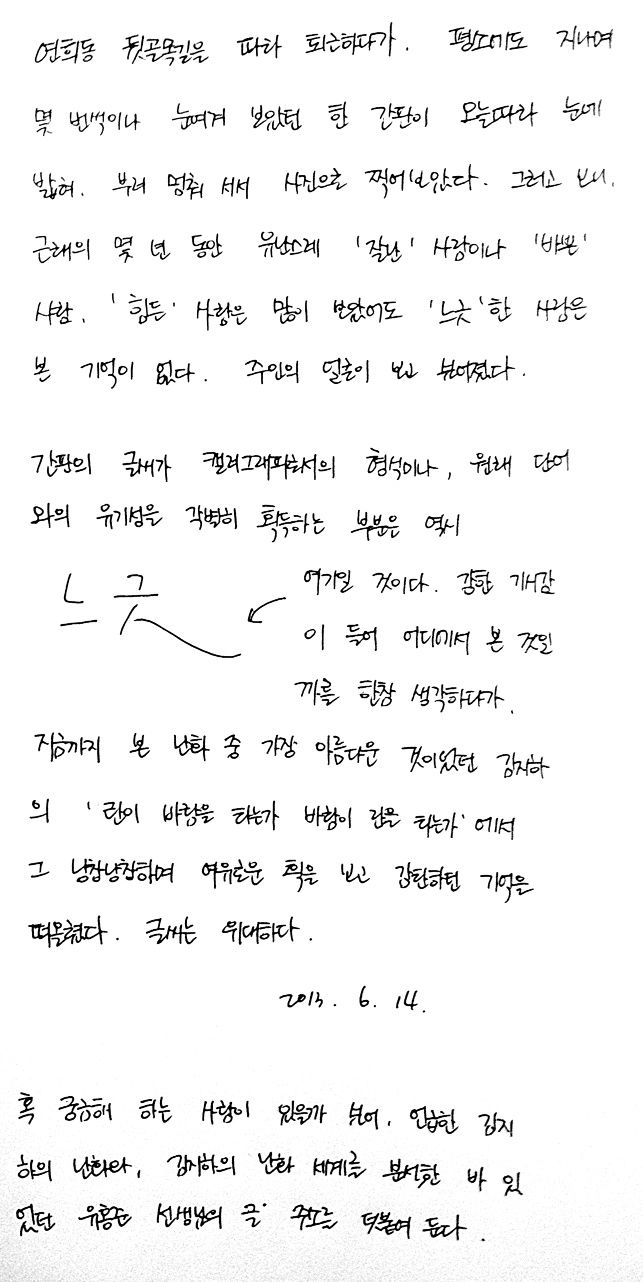 연희동 뒷골목길을 따라 퇴근하다가. 평소에도 지나며
몇 번씩이나 눈여겨 보았던 한 간판이 오늘따라 눈에
밟혀. 부러 멈춰 서서 사진으로 찍어보았다. 그러고 보니,
근래의 몇 년 동안 유난스레 '잘난' 사람이나 '바쁜'
사람. '힘든' 사람은 많이 보았어도 '느긋'한 사람은
본 기억이 없다. 주인의 얼굴이 보고 싶어졌다.
간판의 글씨가 캘리그래피로서의 형식이나, 원래 단어
와의 유기성을 각별히 획득하는 부분은 역시
느긋
여기일 것이다. 강한 기시감
이 들어 어디에서 본 것일
까를 한창 생각하다가.
지금까지 본 난화 중 가장 아름다운 것이었던 김지하
의 '란이 바람을 타는가 바람이 란을 타는가'에서
그 낭창낭창하며 여유로운 획을 보고 감탄하던 기억을
떠올렸다. 글씨는 위대하다.
2013. 6. 14.
혹 궁금해 하는 사람이 있을까 싶어, 언급한 김지
하의 난화와, 김지하의 난화 세계를 분석한 바 있
었던 유홍준 선생님의 글 주소를 덧붙여 둔다.